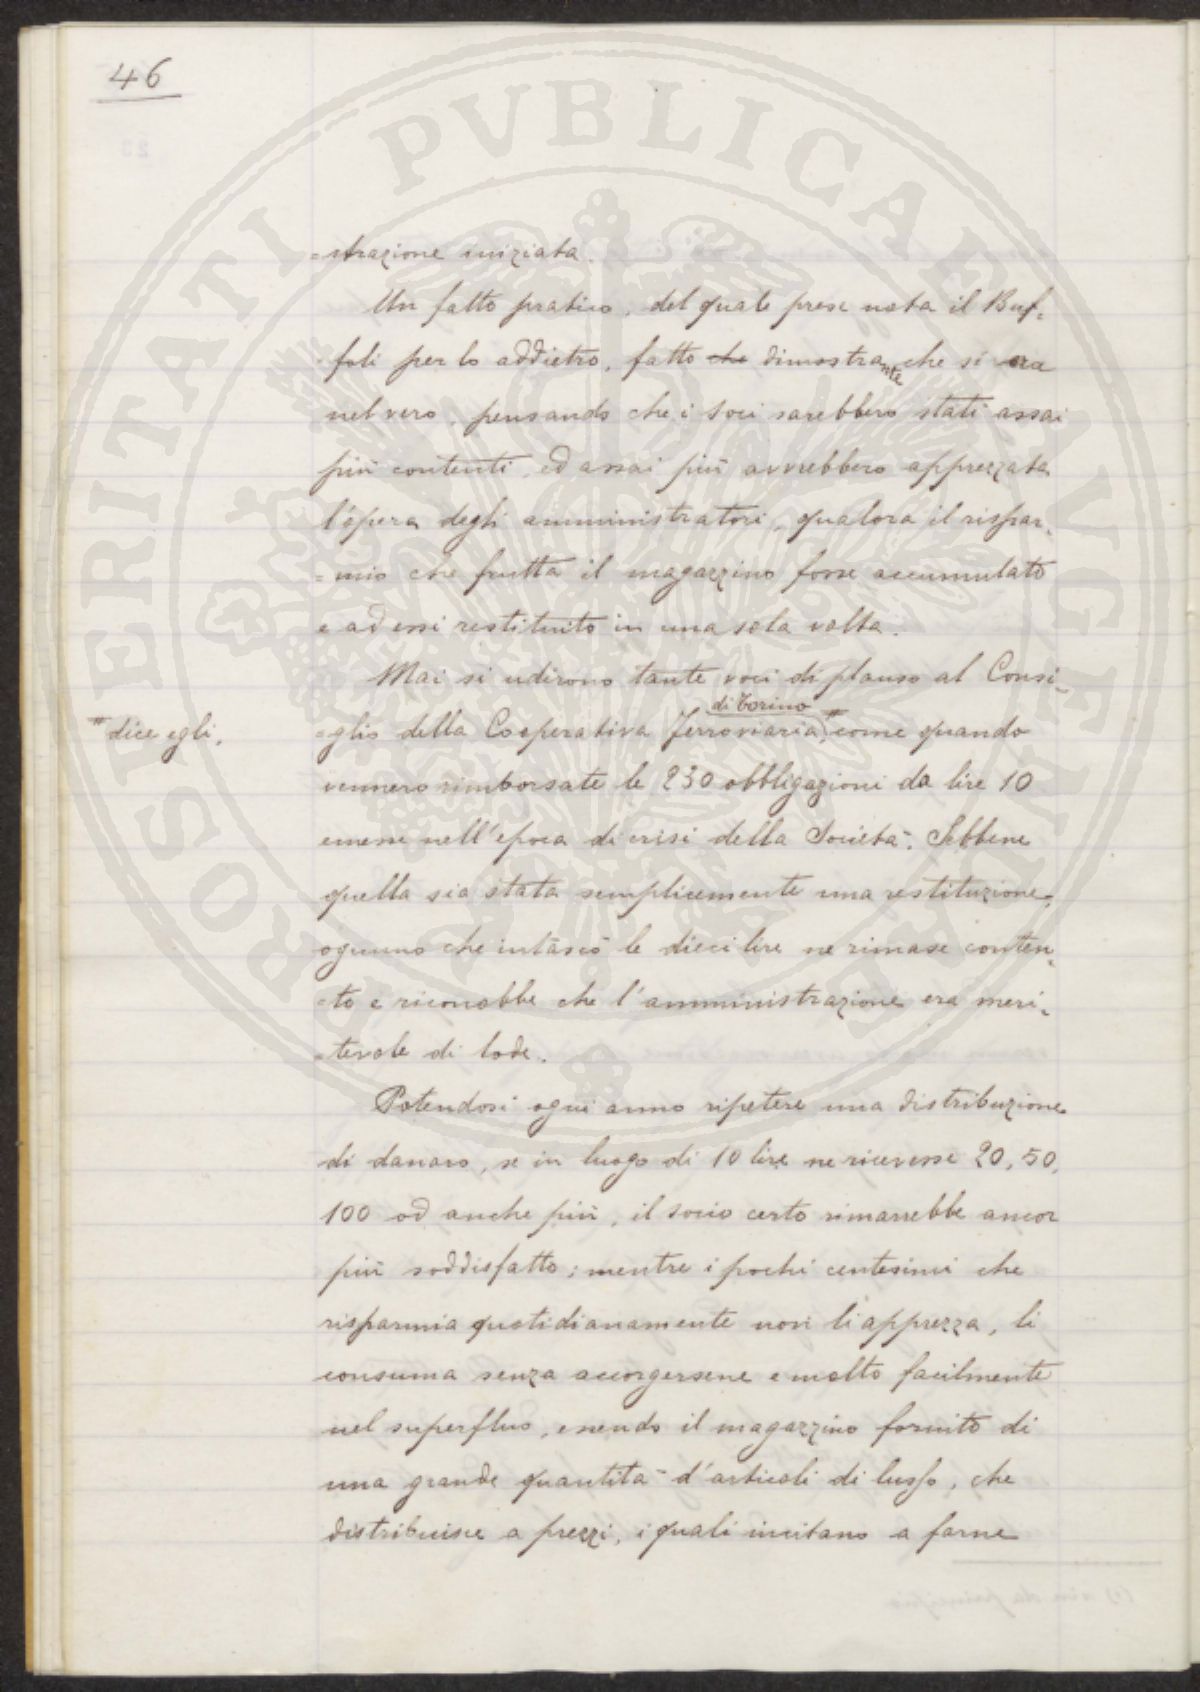 46
=strazione iniziata.
Un fatto pratico, del quale prese nota il Buf=
=foli per lo addietro, fatto che dimostrante che si era
nel vero, pensando che i soci sarebbero stati assai
più contenti, ed assai più avrebbero apprezzata
l'opera degli amministratori, qualora il rispar=
=mio che frutta il magazzino fosse accumulato
e ad essi restituito in una sola volta.
Mai si udirono tante voci di plauso al Consi=
di Torino
# dice egli,
=glio della Cooperativa ferroviaria,# come quando
vennero rimborsate le 230 obbligazioni da lire 10
emesse nell'epoca di crisi della Società. Sebbene
quella sia stata semplicemente una restituzione,
ognuno che intascò le dieci lire ne rimase conten=
=to e riconobbe che l'amministrazione era meri=
=tevole di lode.
Potendosi ogni anno ripetere una distribuzione
di danaro, se in luogo di 10 lire ne ricevesse 20, 50,
100 od anche più, il socio certo rimarrebbe ancor
più soddisfatto; mentre i pochi centesimi che
risparmia quotidianamente non li apprezza, li
consuma senza accorgersene e molto facilmente
nel superfluo, essendo il magazzino fornito di
una grande quantità d'articoli di lusso, che
distribuisce a prezzi, i quali incitano a farne
PROSPERITATI PVBLICAE AVGENDAE